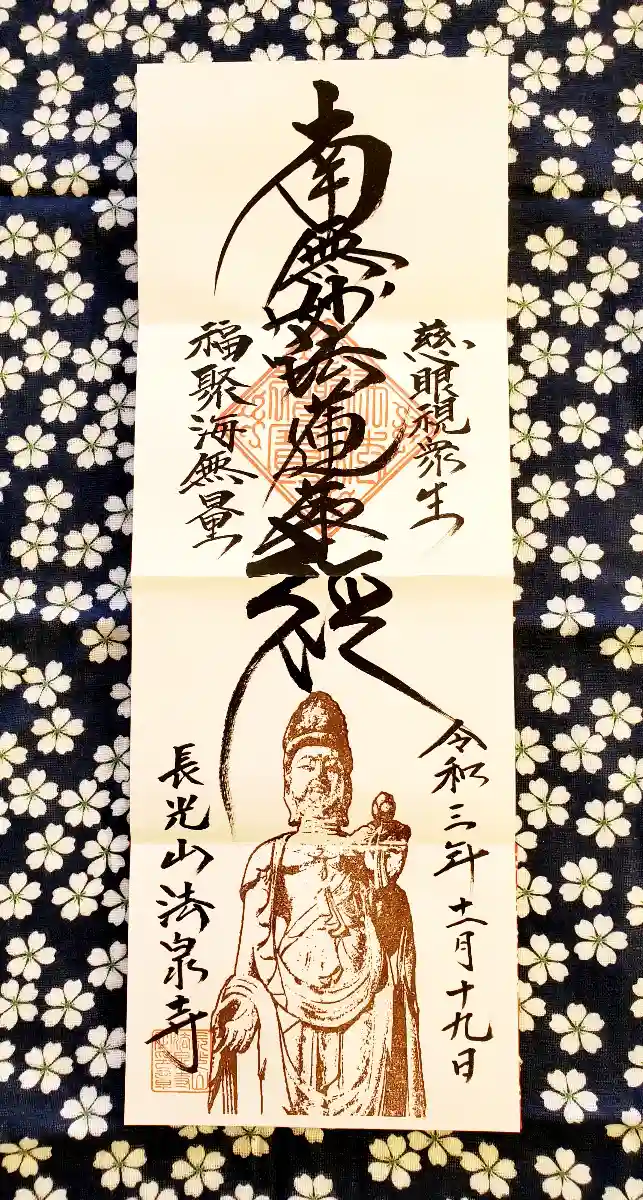 慈眼視衆生
南無妙法蓮華経
福聚海無量
令和三年十一月十九日
長光山法泉寺